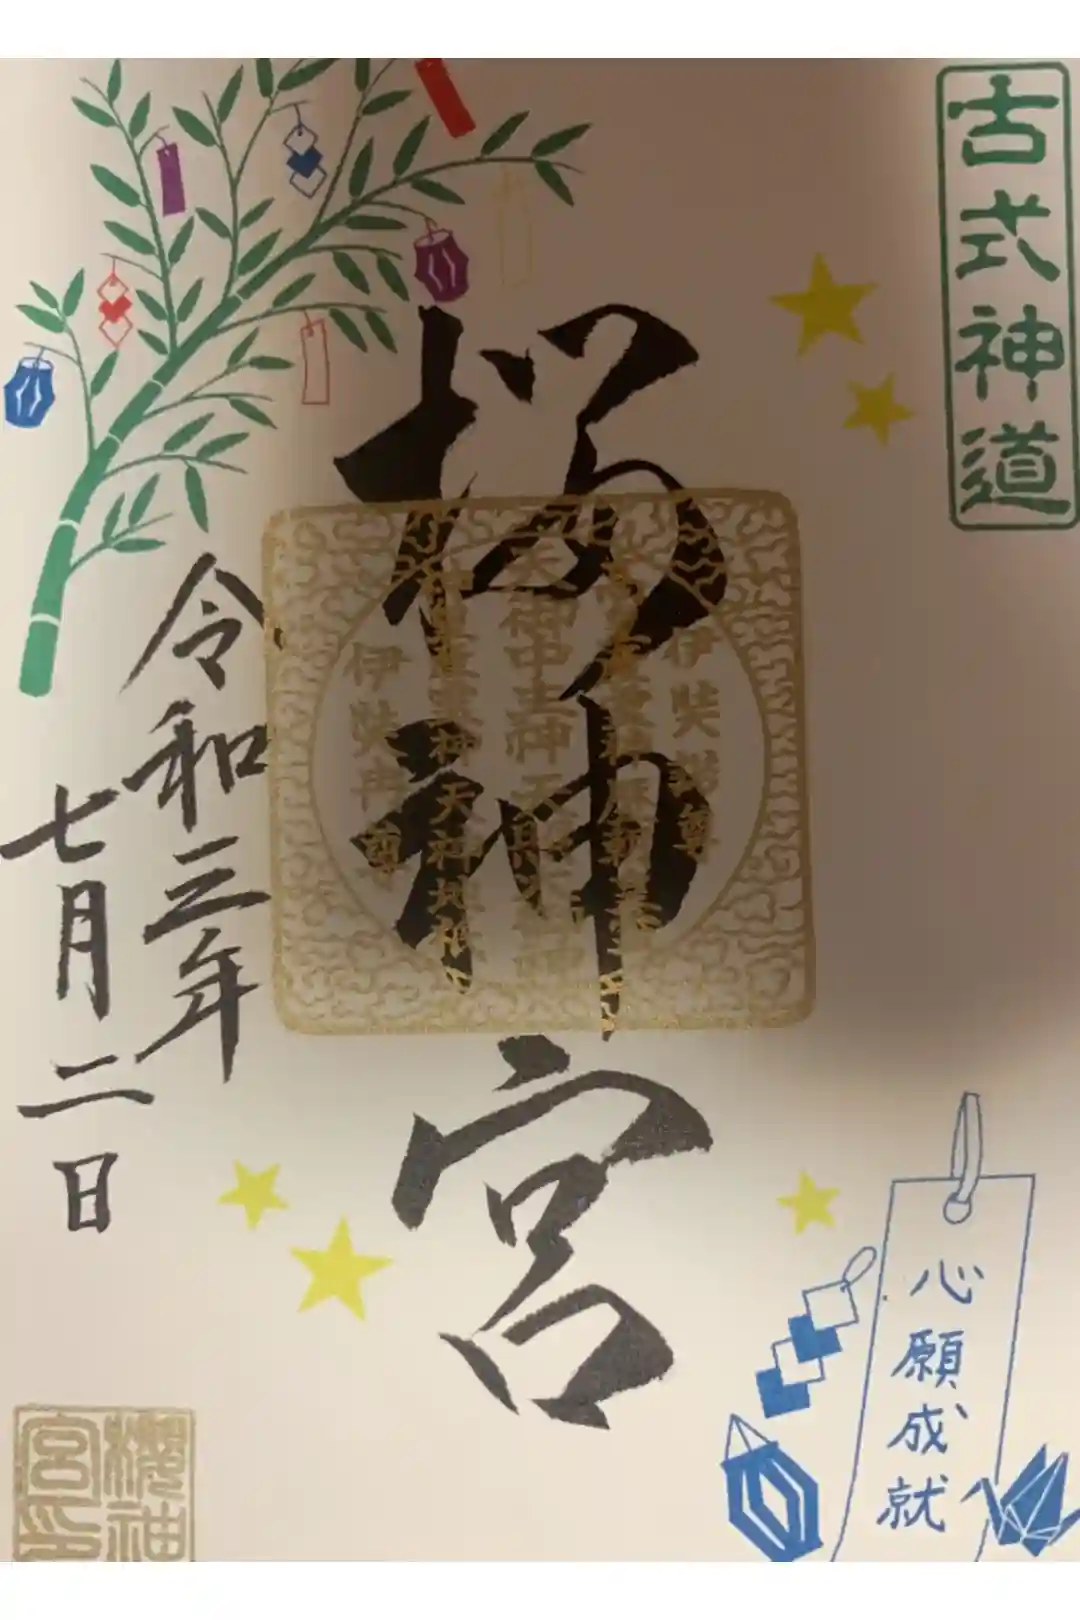 古式神道
桜神宮
伊奘諾尊
伊奘冉尊
令和三年
七月二日
心願成就
櫻神
宮印